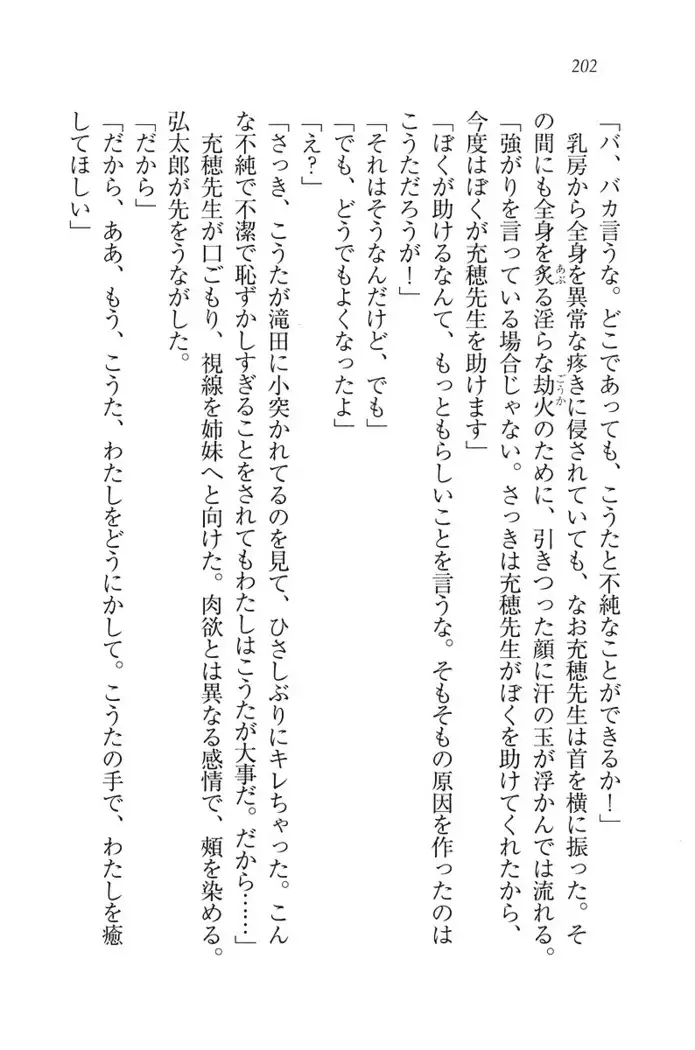 202
「バ、バカ言うな。どこであっても、こうたと不純なことができるか！」
乳房から全身を異常な疼きに侵されていても、なお充穂先生は首を横に振った。そ
の間にも全身を炙る淫らな劫火のために、引きつった顔に汗の玉が浮かんでは流れる。
あぶ
ごうか
「強がりを言っている場合じゃない。さっきは充穂先生がぼくを助けてくれたから、
今度はぼくが充穂先生を助けます」
「ぼくが助けるなんて、もっともらしいことを言うな。そもそもの原因を作ったのは
こうただろうが！」
「それはそうなんだけど、でも」
「でも、どうでもよくなったよ」
「え？」
「さっき、こうたが滝田に小突かれてるのを見て、ひさしぶりにキレちゃった。こん
な不純で不潔で恥ずかしすぎることをされてもわたしはこうたが大事だ。だから……」
充穂先生が口ごもり、視線を姉妹へと向けた。肉欲とは異なる感情で、頬を染める。
弘太郎が先をうながした。
「だから」
「だから、ああ、もう、こうた、わたしをどうにかして。こうたの手で、わたしを癒
してほしい」